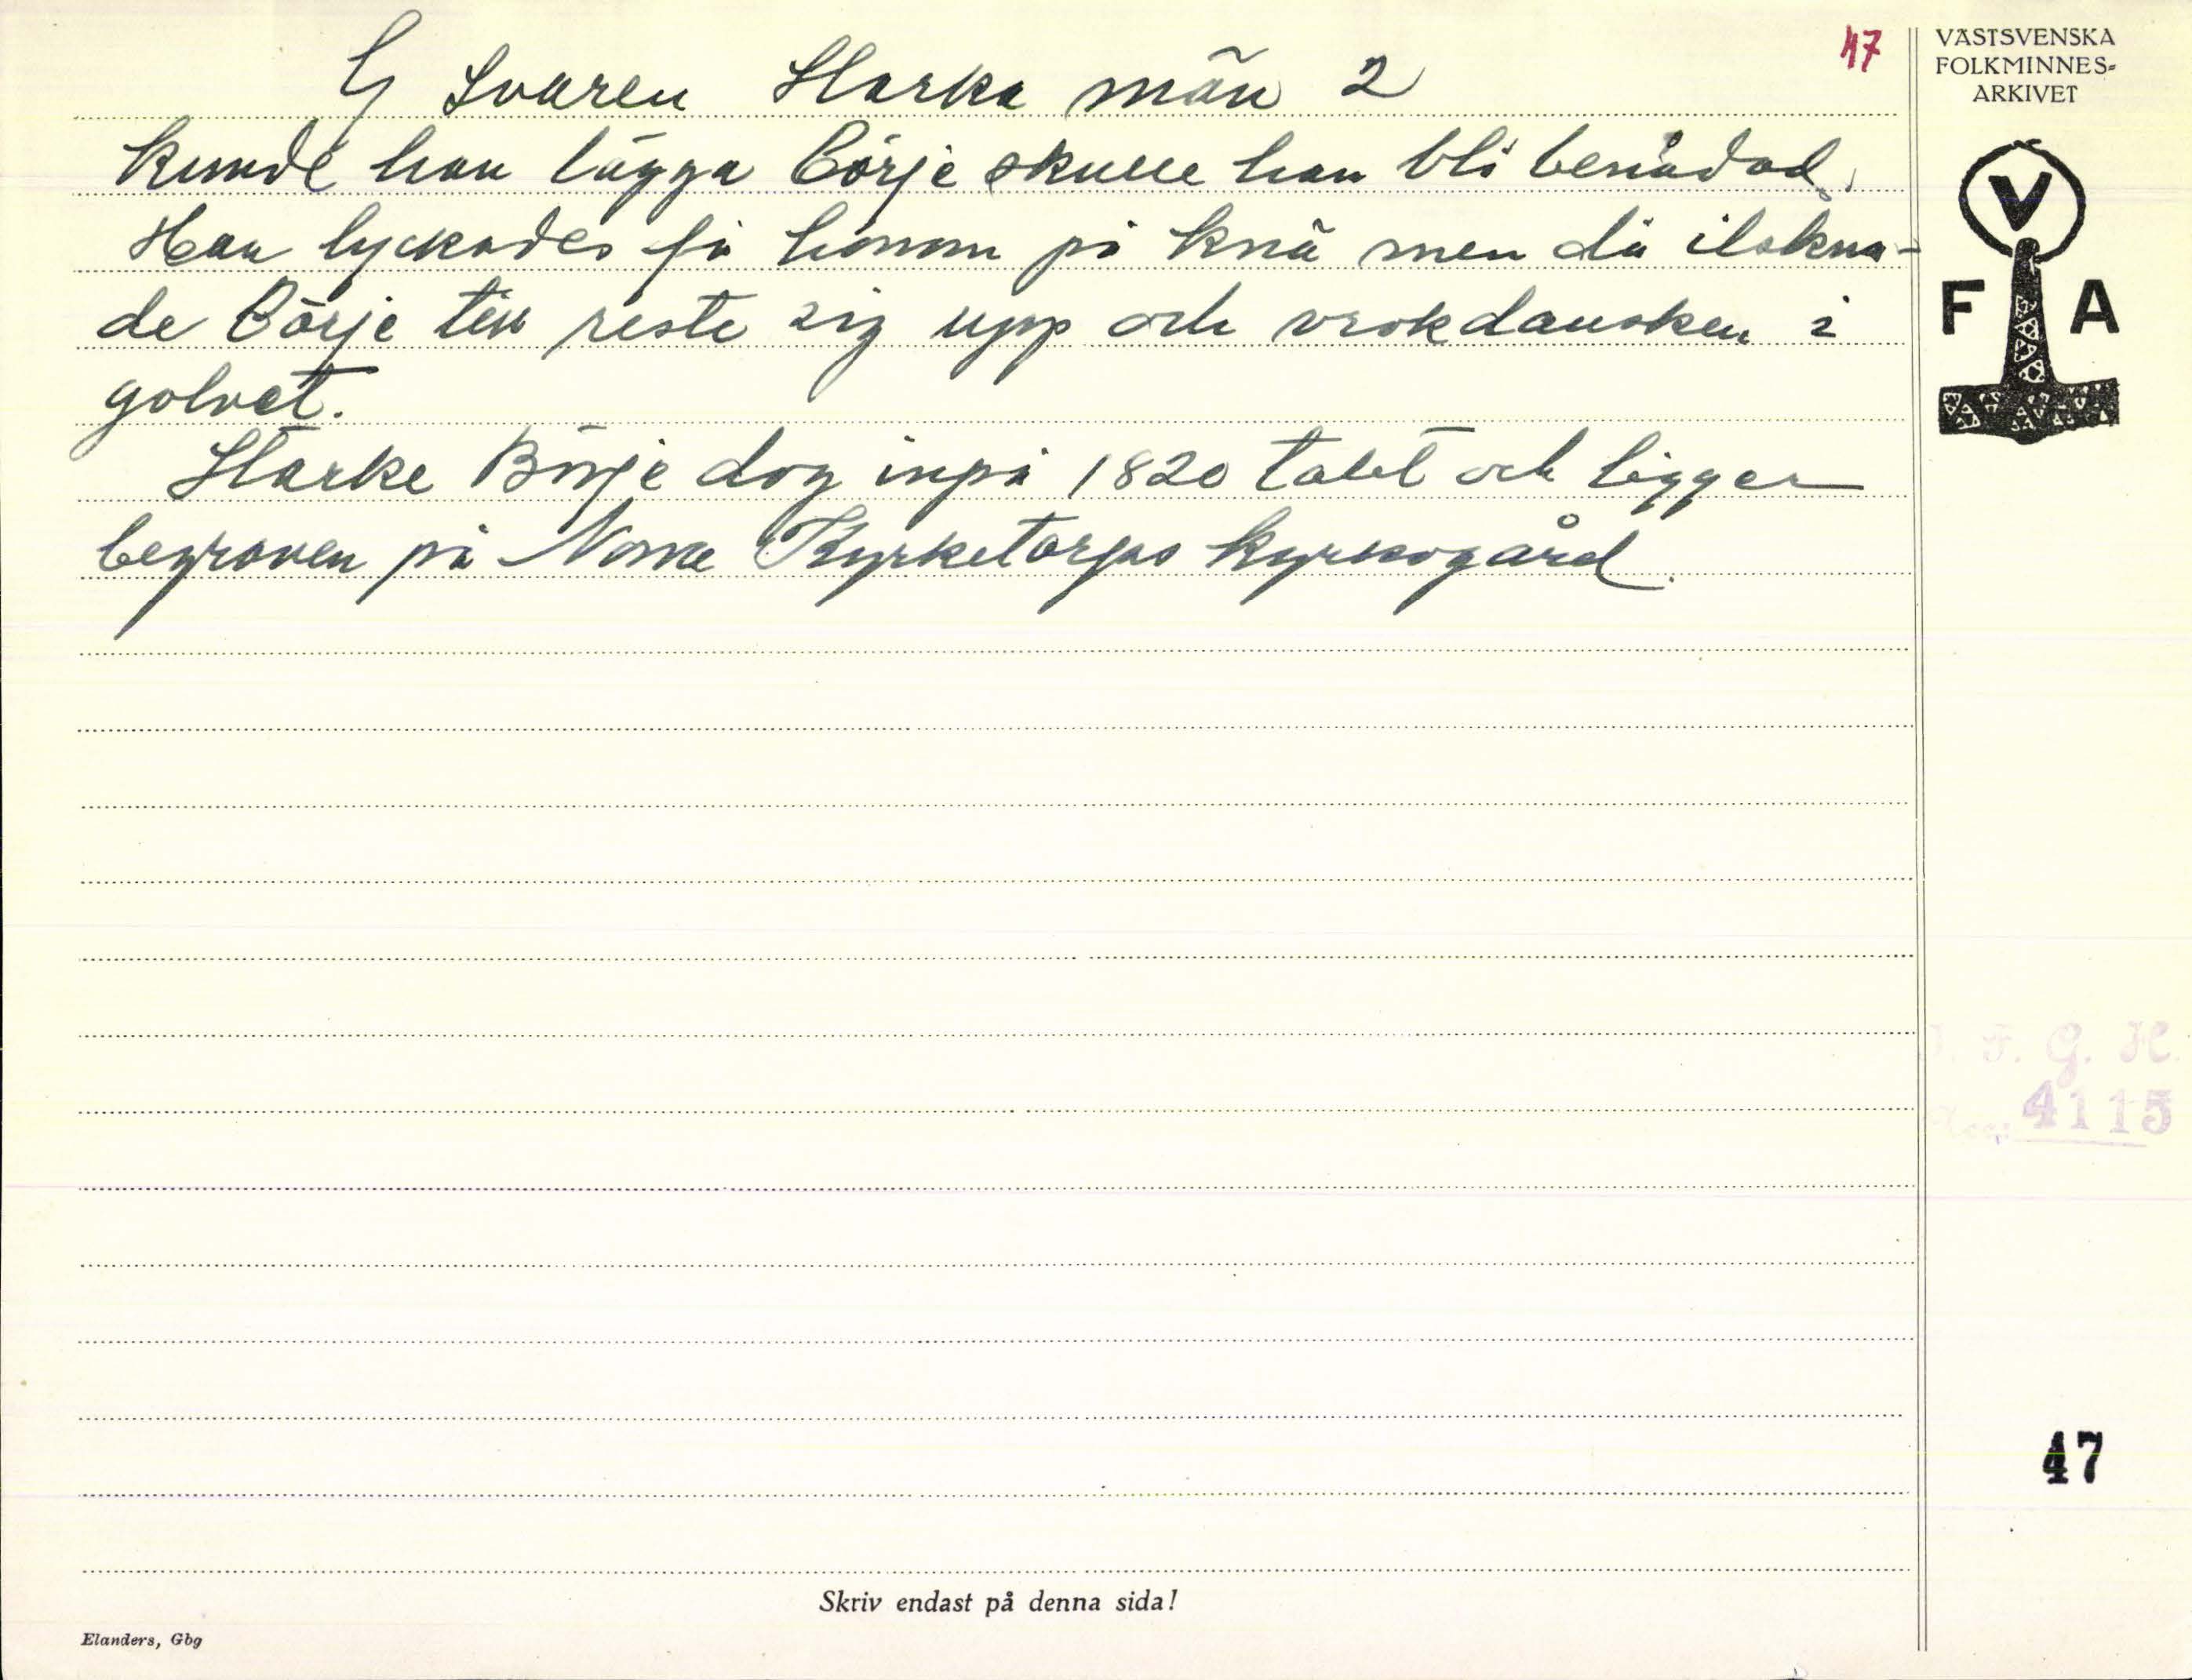 G Svaren Starka män 2
47
kunde han lägga Börje skulle han bli benådad.
Han lyckades få honom på knä men då ilskna-
de Börje till reste sig upp och vrok dansken i
golvet.
Starke Börje dog inpå 1820 talet och ligger
begraven på Norra Kyrketorps kyrkogård.
VÄSTSVENSKA
FOLKMINNES-
ARKIVET
V
F A
G. H.
4115
47
Skriv endast på denna sida!
Elanders, Gbg